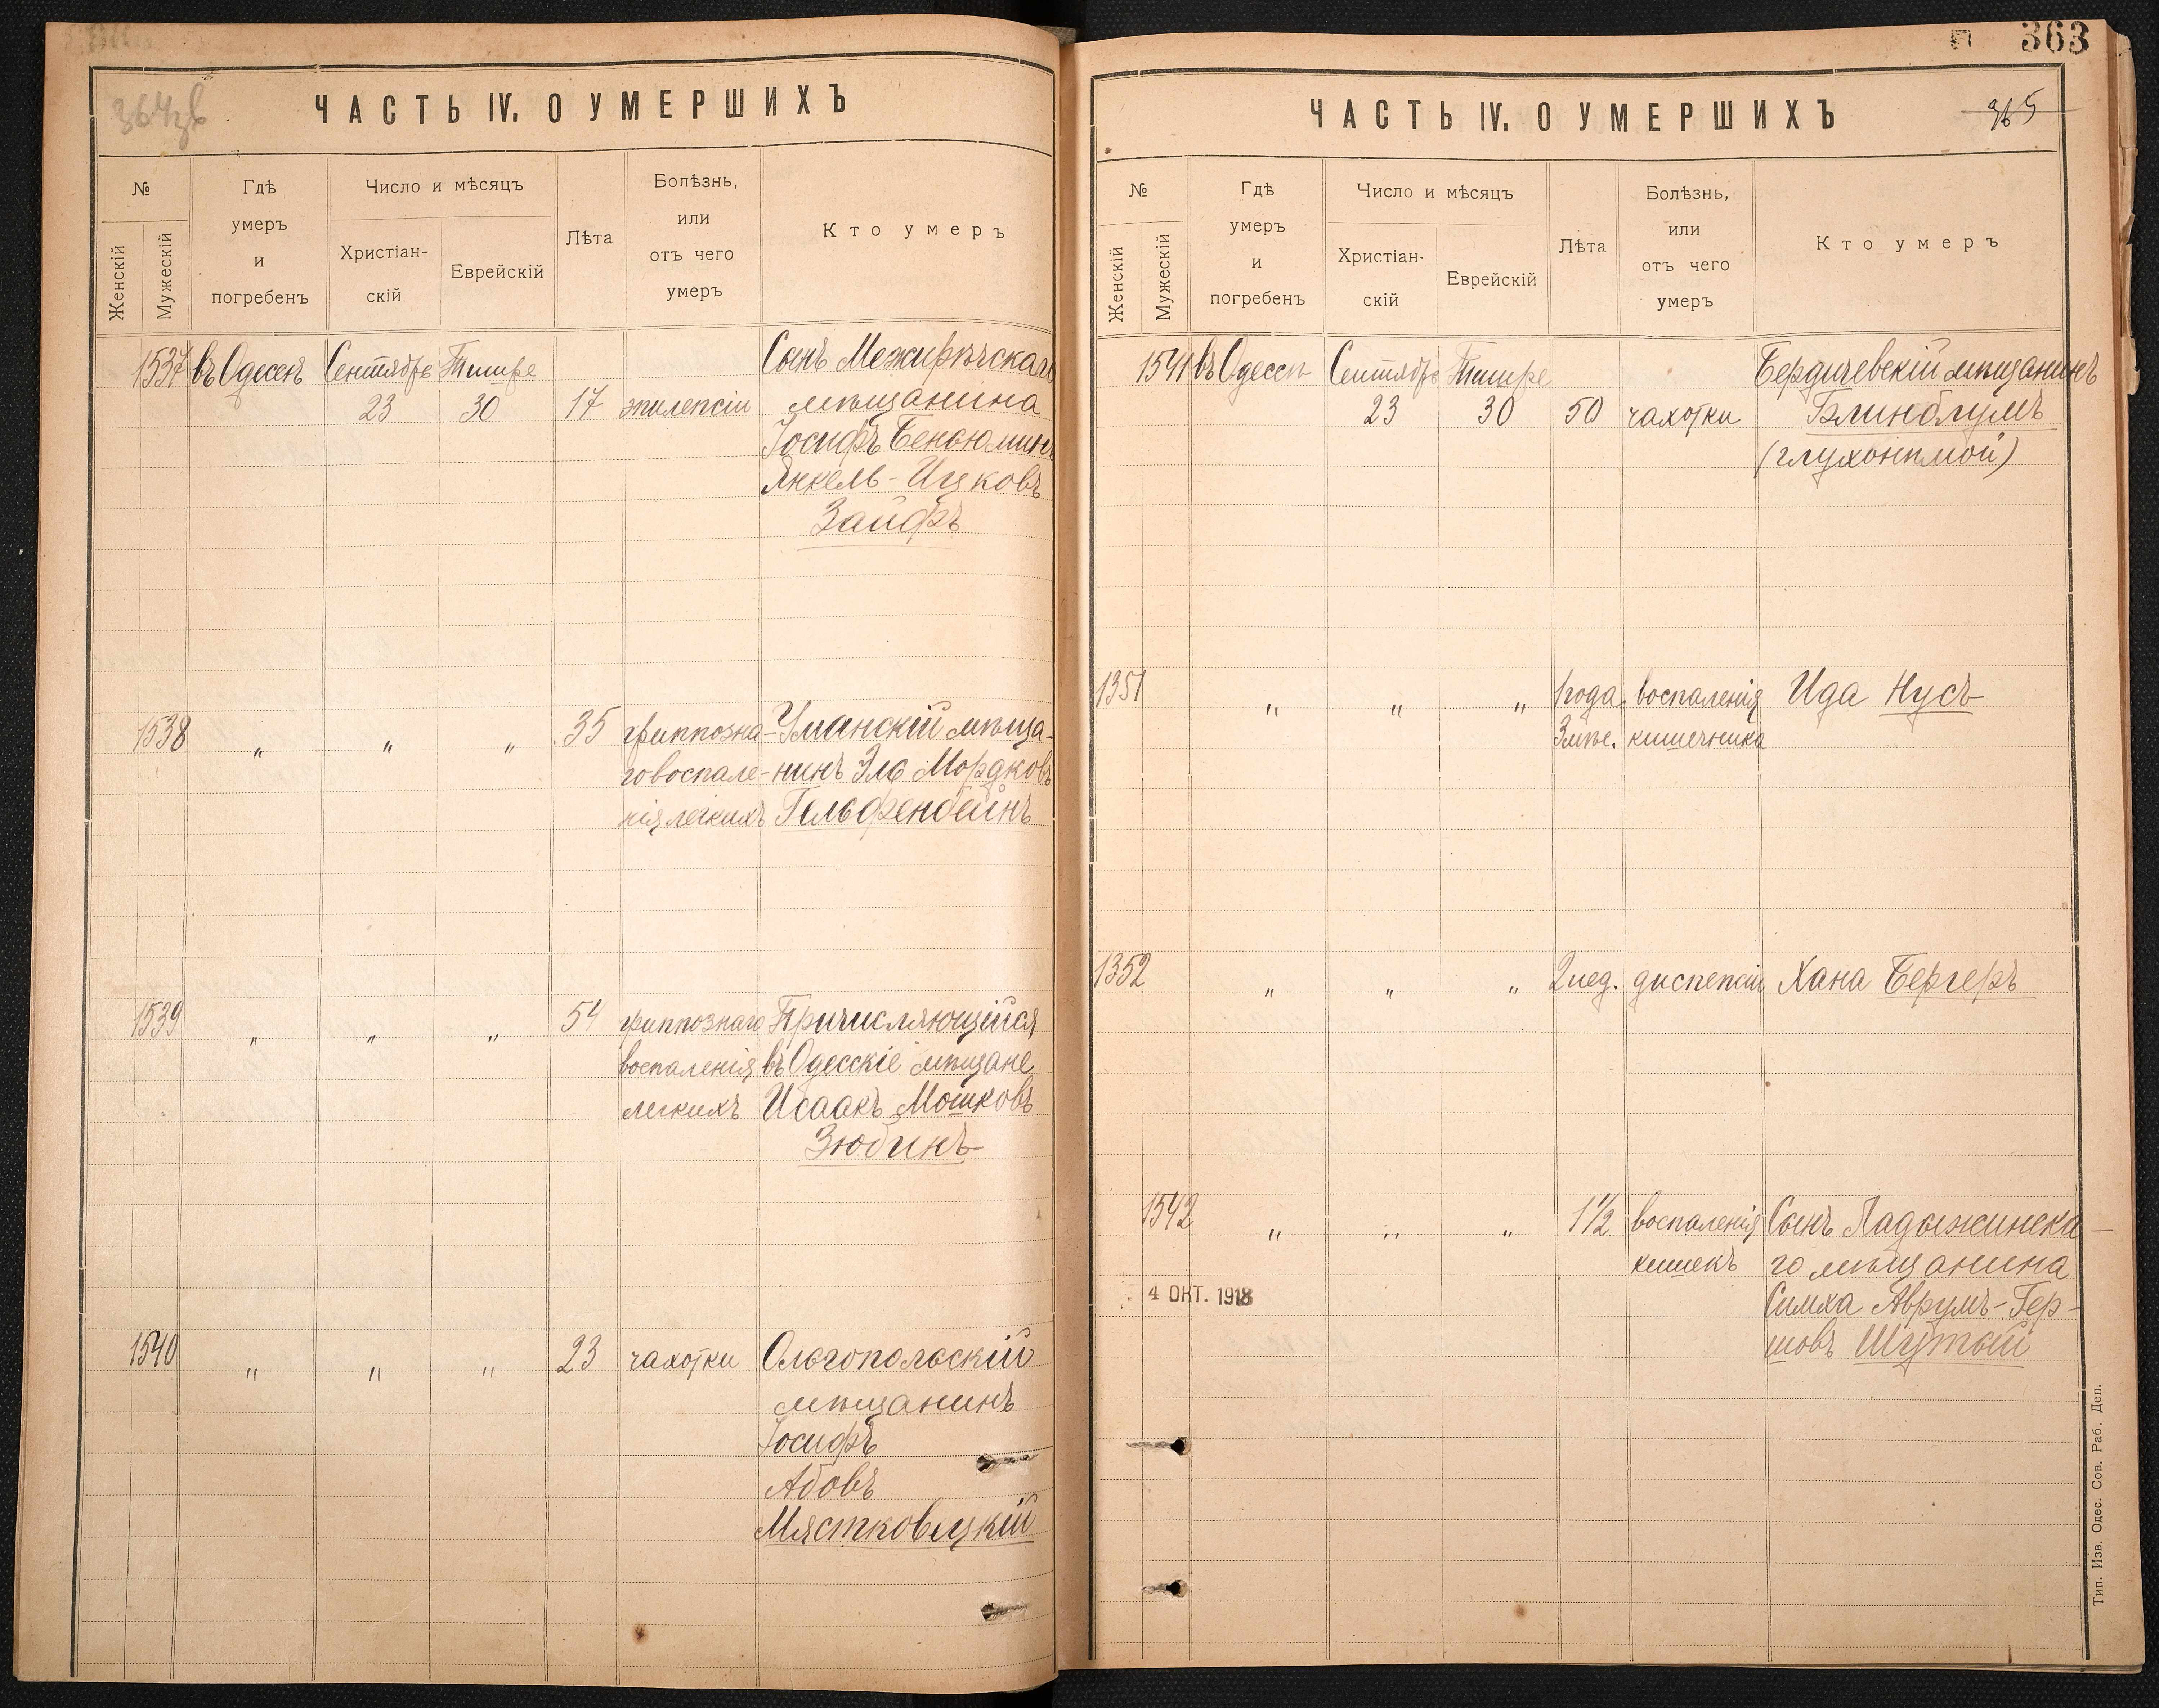 364зв
ЧАСТЬ IV. О УМЕРШИХЪ
№
Женскій
Мужескій
Гдѣ
умеръ
и
погребенъ
Число и мѣсяцъ
Христіан-
скій
Еврейскій
Лѣта
Болѣзнь,
или
отъ чего
умеръ
Кто умеръ
1537 въ Одессѣ Сентябре Тишре Сынъ Межирѣчскаго
23 30 17 эпилепсіи мѣщанина
Іосифъ Беньюминъ
Янкель-Ицковъ
Зайфъ
1538 " " " 35 гриппозна- Уманскій мѣща-
го воспале- нинъ Эля Мордковъ
нія легкихъ Гельфенбейнъ
1539 " " " 54 гриппознаго Причисляющійся
воспаленія въ Одесскіе мѣщане
легкихъ Исаакъ Мошковъ
Зюбинъ
1540 " " " 23 чахотки Ольгопольскій
мѣщанинъ
Іосифъ
Абовъ
Мястковецкій
363
365
ЧАСТЬ IV. О УМЕРШИХЪ
№
Женскій
Мужескій
Гдѣ
умеръ
и
погребенъ
Число и мѣсяцъ
Христіан-
скій
Еврейскій
Лѣта
Болѣзнь,
или
отъ чего
умеръ
Кто умеръ
1541 въ Одессѣ Сентябре Тишре Бердичевскій мѣщанинъ
23 30 50 чахотки Блинблумъ
(глухонѣмой)
1351 " " " 1 года воспаленія Ида Нусъ
3 мѣс. кишечника
1352 " " " 2 нед. диспепсіи Хана Бергеръ
1542 " " " 1 1/2 воспаленія Сынъ Ладыжинска-
кишекъ го мѣщанина
4 ОКТ. 1918 Симха Аврумъ-Гер-
шовъ Шутый
Тип. Изв. Одес. Сов. Раб. Деп.